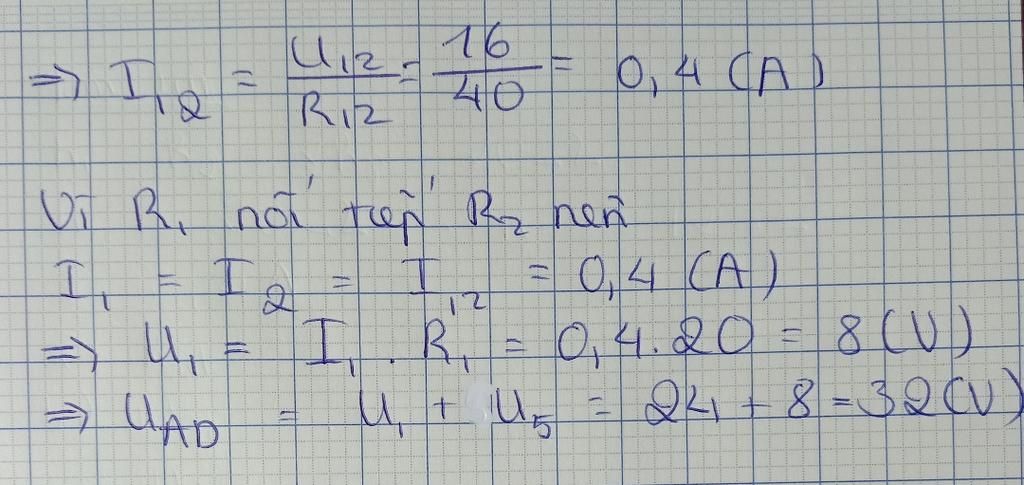 => I₁₂ = U₁₂/R₁₂ = 16/40 = 0,4 (A)
Vì R₁ nối tiếp R₂ nên
I₁ = I₂ = I₁₂ = 0,4 (A)
=> U₁ = I₁ . R₁ = 0,4.20 = 8 (V)
=> U_AD = U₁ + U₅ = 24 + 8 = 32 (V)